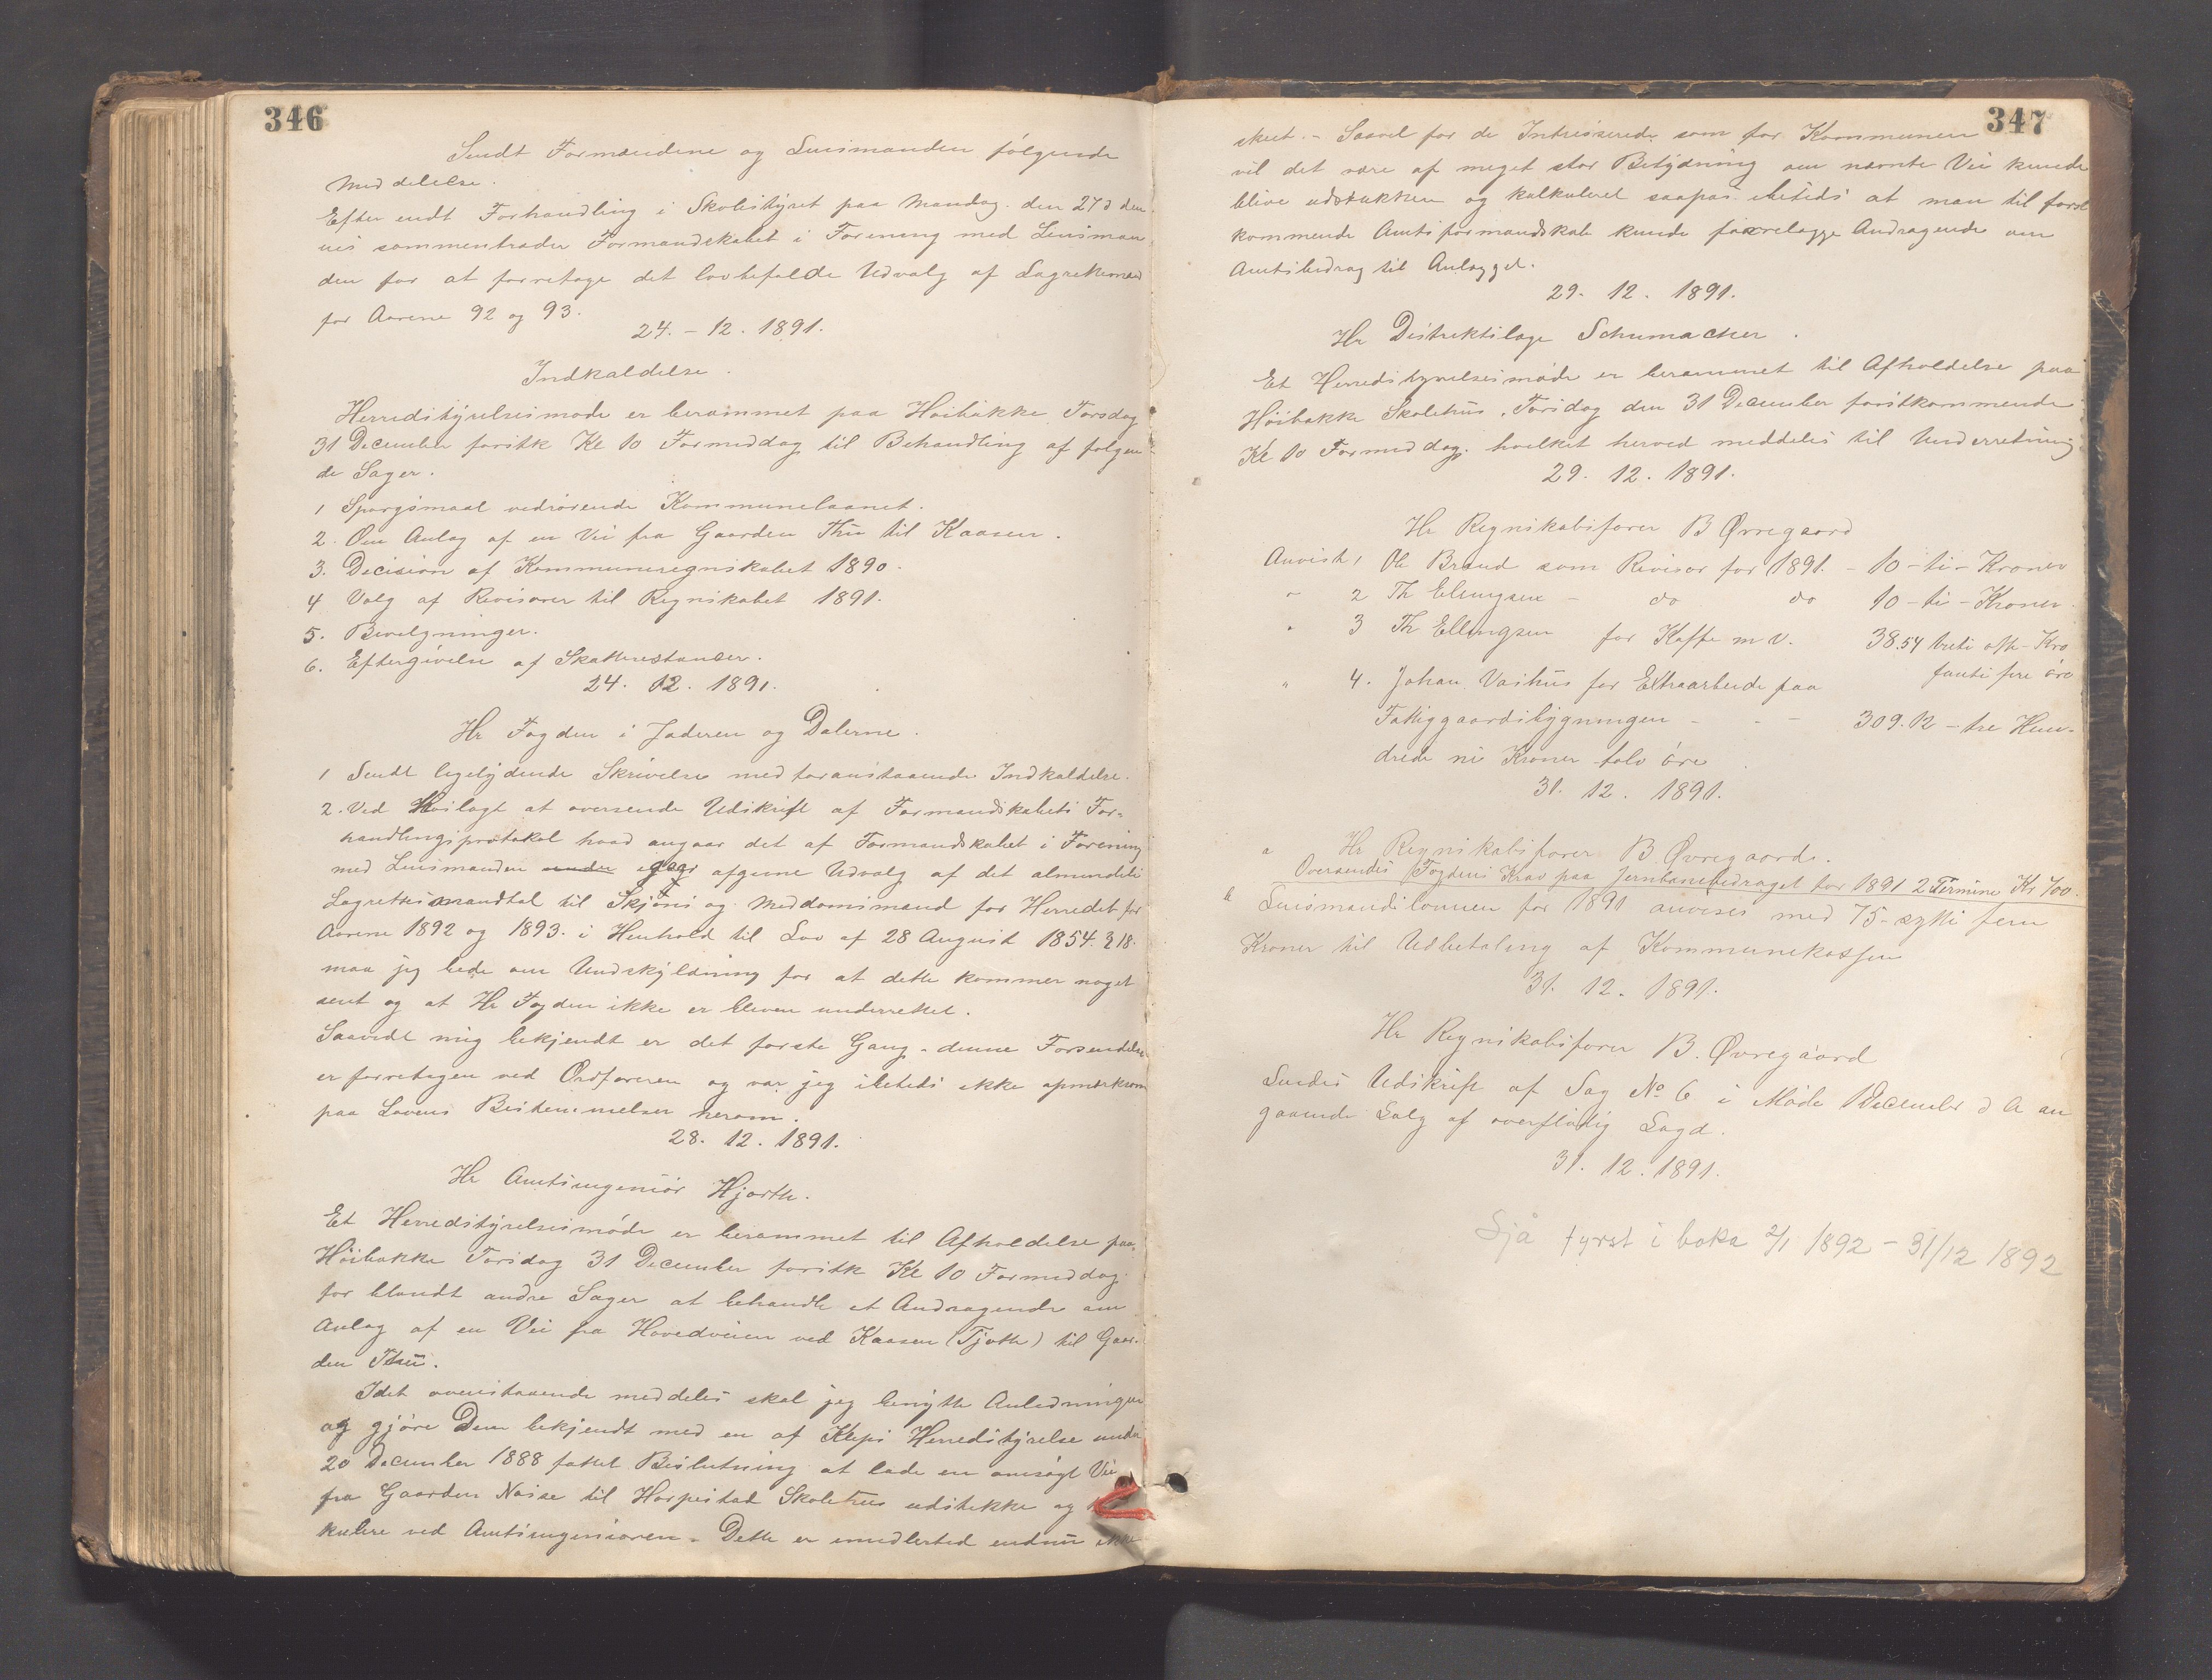 346
Sendt Formændene og Lensmanden følgende
Meddelelse.
Efter endt Forhandling i Skolestyret paa Mandag den 27d den
nes sammentræder Formandskabet i Forening med Lensman
den for at foretage det lovbefalde Udvalg af Lagrettemænd
for Aarene 92 og 93.
24. - 12. 1891.
Indkaldelse.
Herredstyrelsesmøde er berammet paa Høibakke Torsdag
31 December førstk Kl 10 Formiddag til Behandling af følgen-
de Sager.
1 Spørgsmaal vedrørende Kommunelaanet.
2. Om Anlæg af en Vei fra Gaarden Thu til Kaasen.
3. Decision af Kommuneregnskabet 1890.
4 Valg af Revisorer til Regnskabet 1891.
5. Bevilgninger.
6. Eftergivelse af Skatterestancer.
24. 12. 1891.
Hr Fogden i Jæderen og Dalerne.
1 Sendt ligelydende Skrivelse med foranstaaende Indkaldelse.
2. Ved at oversende Udskrift af Formandskabets For-
handlingsprotokol hvad angaar det af Formandskabet i Forening
med Lensmanden under afgivne Udvalg af det almindeli
Lagrettesmandtal til Skjøns og Meddomsmænd for Herredet for
Aarene 1892 og 1893. i Henhold til Lov af 28 August 1854. § 18.
maa jeg bede om Undskyldning for at dette kommer noget
sent og at Hr Fogden ikke er bleven underrettet.
Saavidt mig bekjendt er det første Gang denne Forsendelse
er foretagen ved Ordføreren og var jeg iletids ikke opmærksom
paa Lovens Bestemmelser herom.
28. 12. 1891.
Hr Amtsingeniør Hjorth.
Et Herredstyrelsesmøde er berammet til Afholdelse paa
Høibakke Torsdag 31 December førstk Kl 10 Formiddag
for blandt andre Sager at behandle et Andragende om
Anlæg af en Vei fra Hovedveien ved Kaasen (Tjøtte) til Gaar-
den Thu.
Idet ovenstaaende meddeles skal jeg benytte Anledningen
og gjøre Dem bekjendt med en af Kleps Herredstyrelse under
20 December 1888 fattet Beslutning at lade en ansøgt Vei
fra Gaarden Næise til Horpestad Skolehus udstikke og
kulere ved Amtsingeniøren. Dette er imidlertid endnu ikke
347
skeet. - Saavel for de Intresserede som for Kommunen
vil det være af meget stor Betydning om nævnte Vei kunde
blive udstukken og kalkuleret saapas iletids at man til først
kommende Amtsformandskab kunde forelægge Andragende om
Amtsbidrag til Anlægget.
29. 12. 1891.
Hr Distriktslæge Schumacher.
Et Herredstyrelsesmøde er berammet til Afholdelse paa
Høibakke Skolehus, Torsdag den 31 December førstkommende
Kl 10 Formiddag. hvilket herved meddeles til Underretning
29. 12. 1891.
Hr Regnskabsfører B Øvregaard
Anvist 1 Ole Braud som Revisor for 1891. - 10 - ti - Kroner
" 2 Th Elingsen - do do 10 - ti - Kroner.
" 3 Th Ellingsen for Kaffe m v. 38.54 treti otte - Kro
" 4. Johan Vashus for Extraarbeide paa femti fire øre
Fattiggaardsbygningen - - - 309.12 - tre Hun-
drede ni Kroner tolv øre
31. 12. 1891.
a Hr Regnskabsfører B Øvregaard.
Oversendes Fogdens Krav paa Jernbanebidraget for 1891 2 Termine Kr 700.
b Lensmandslønnen for 1891 anvises med 75- sytti fem
Kroner til Udbetaling af Kommunekassen
31. 12. 1891.
Hr Regnskabsfører B. Øvregaard
Sendes Udskrift af Sag No 6 i Møde December d A an
gaaende Salg af overflødig Lagd.
31. 12. 1891.
Sjå fyrst i boka 2/1 1892 - 31/12 1892